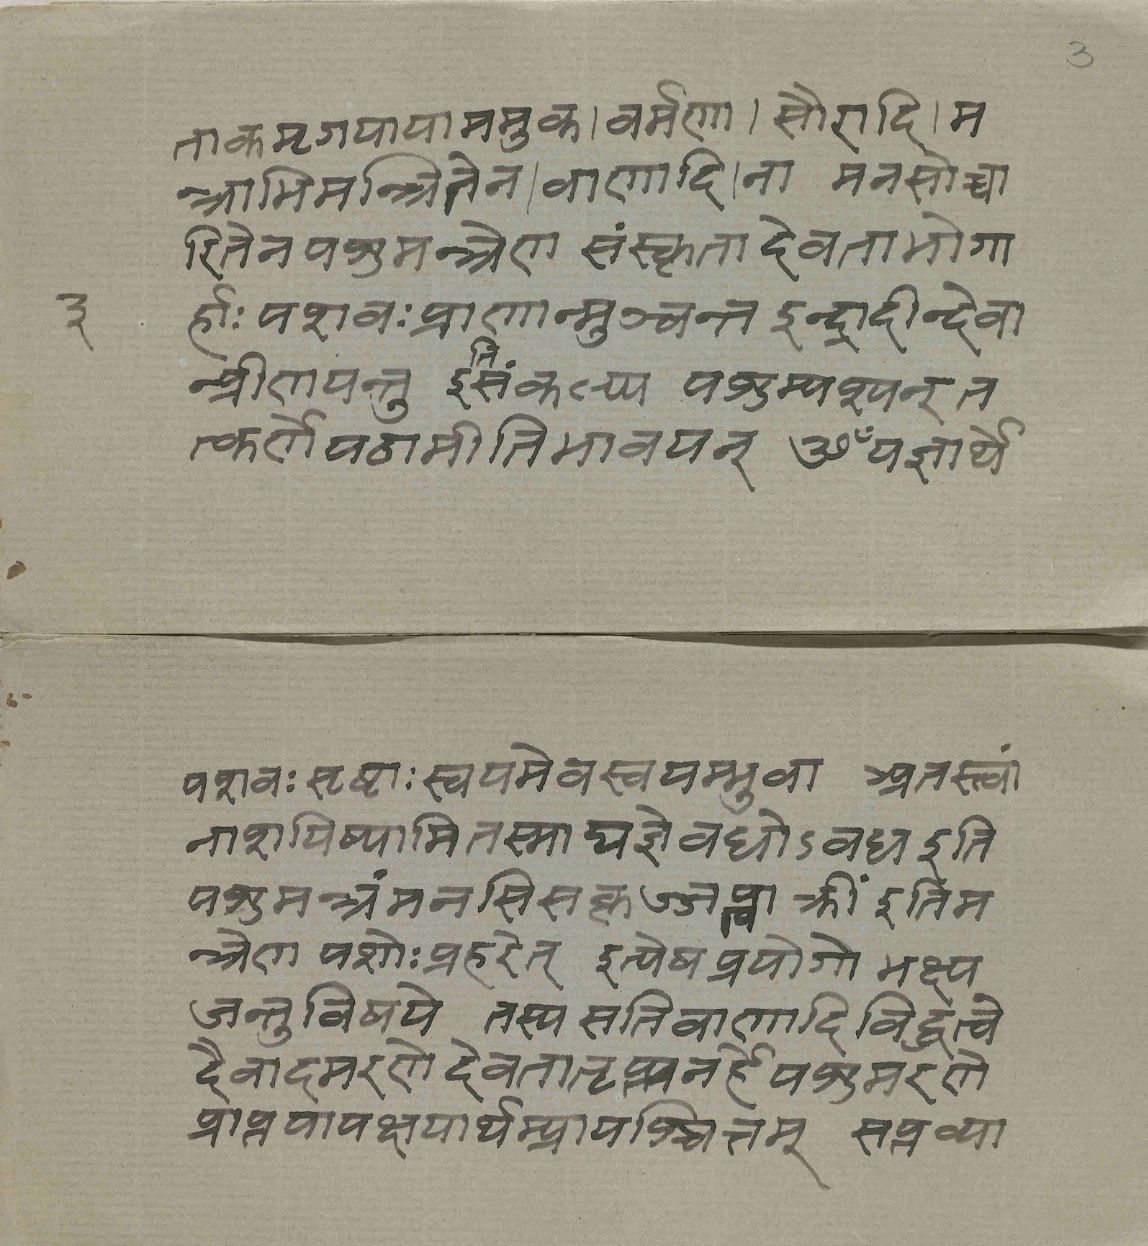 3
ताकमृगयायाममुक।वर्मणा।सौरादि।म
न्त्राभिमन्त्रितेन।वाणादि।ना मनसोच्चा
रितेन पशुमन्त्रेण संस्कृता देवताभोगा
३ र्हाः पशवः प्राणान्मुञ्चन्त इन्द्रादीन्देवा
न्प्रीणयन्तु इतिसंकल्प्य पशुम्पश्यन् त
त्कर्णे पठामीति भावयन् ॐ यज्ञार्थे
पशवः सृष्टाः स्वयमेव स्वयम्भुवा अतस्त्वां
नाशयिष्यामि तस्माद्यज्ञे वधोऽवध इति
पशुमन्त्रं मनसि सकृज्जप्त्वा क्रीं इति म
न्त्रेण पशोः प्रहरेत् इत्येष प्रयोगो भक्ष्य
जन्तुविषये तस्य सति वाणादिविद्धत्वे
दैवादमरणे देवतातृप्त्यनर्हे पशुमरणे
प्राप्तपापक्षयार्थम्प्रायश्चित्तम् सप्तव्या